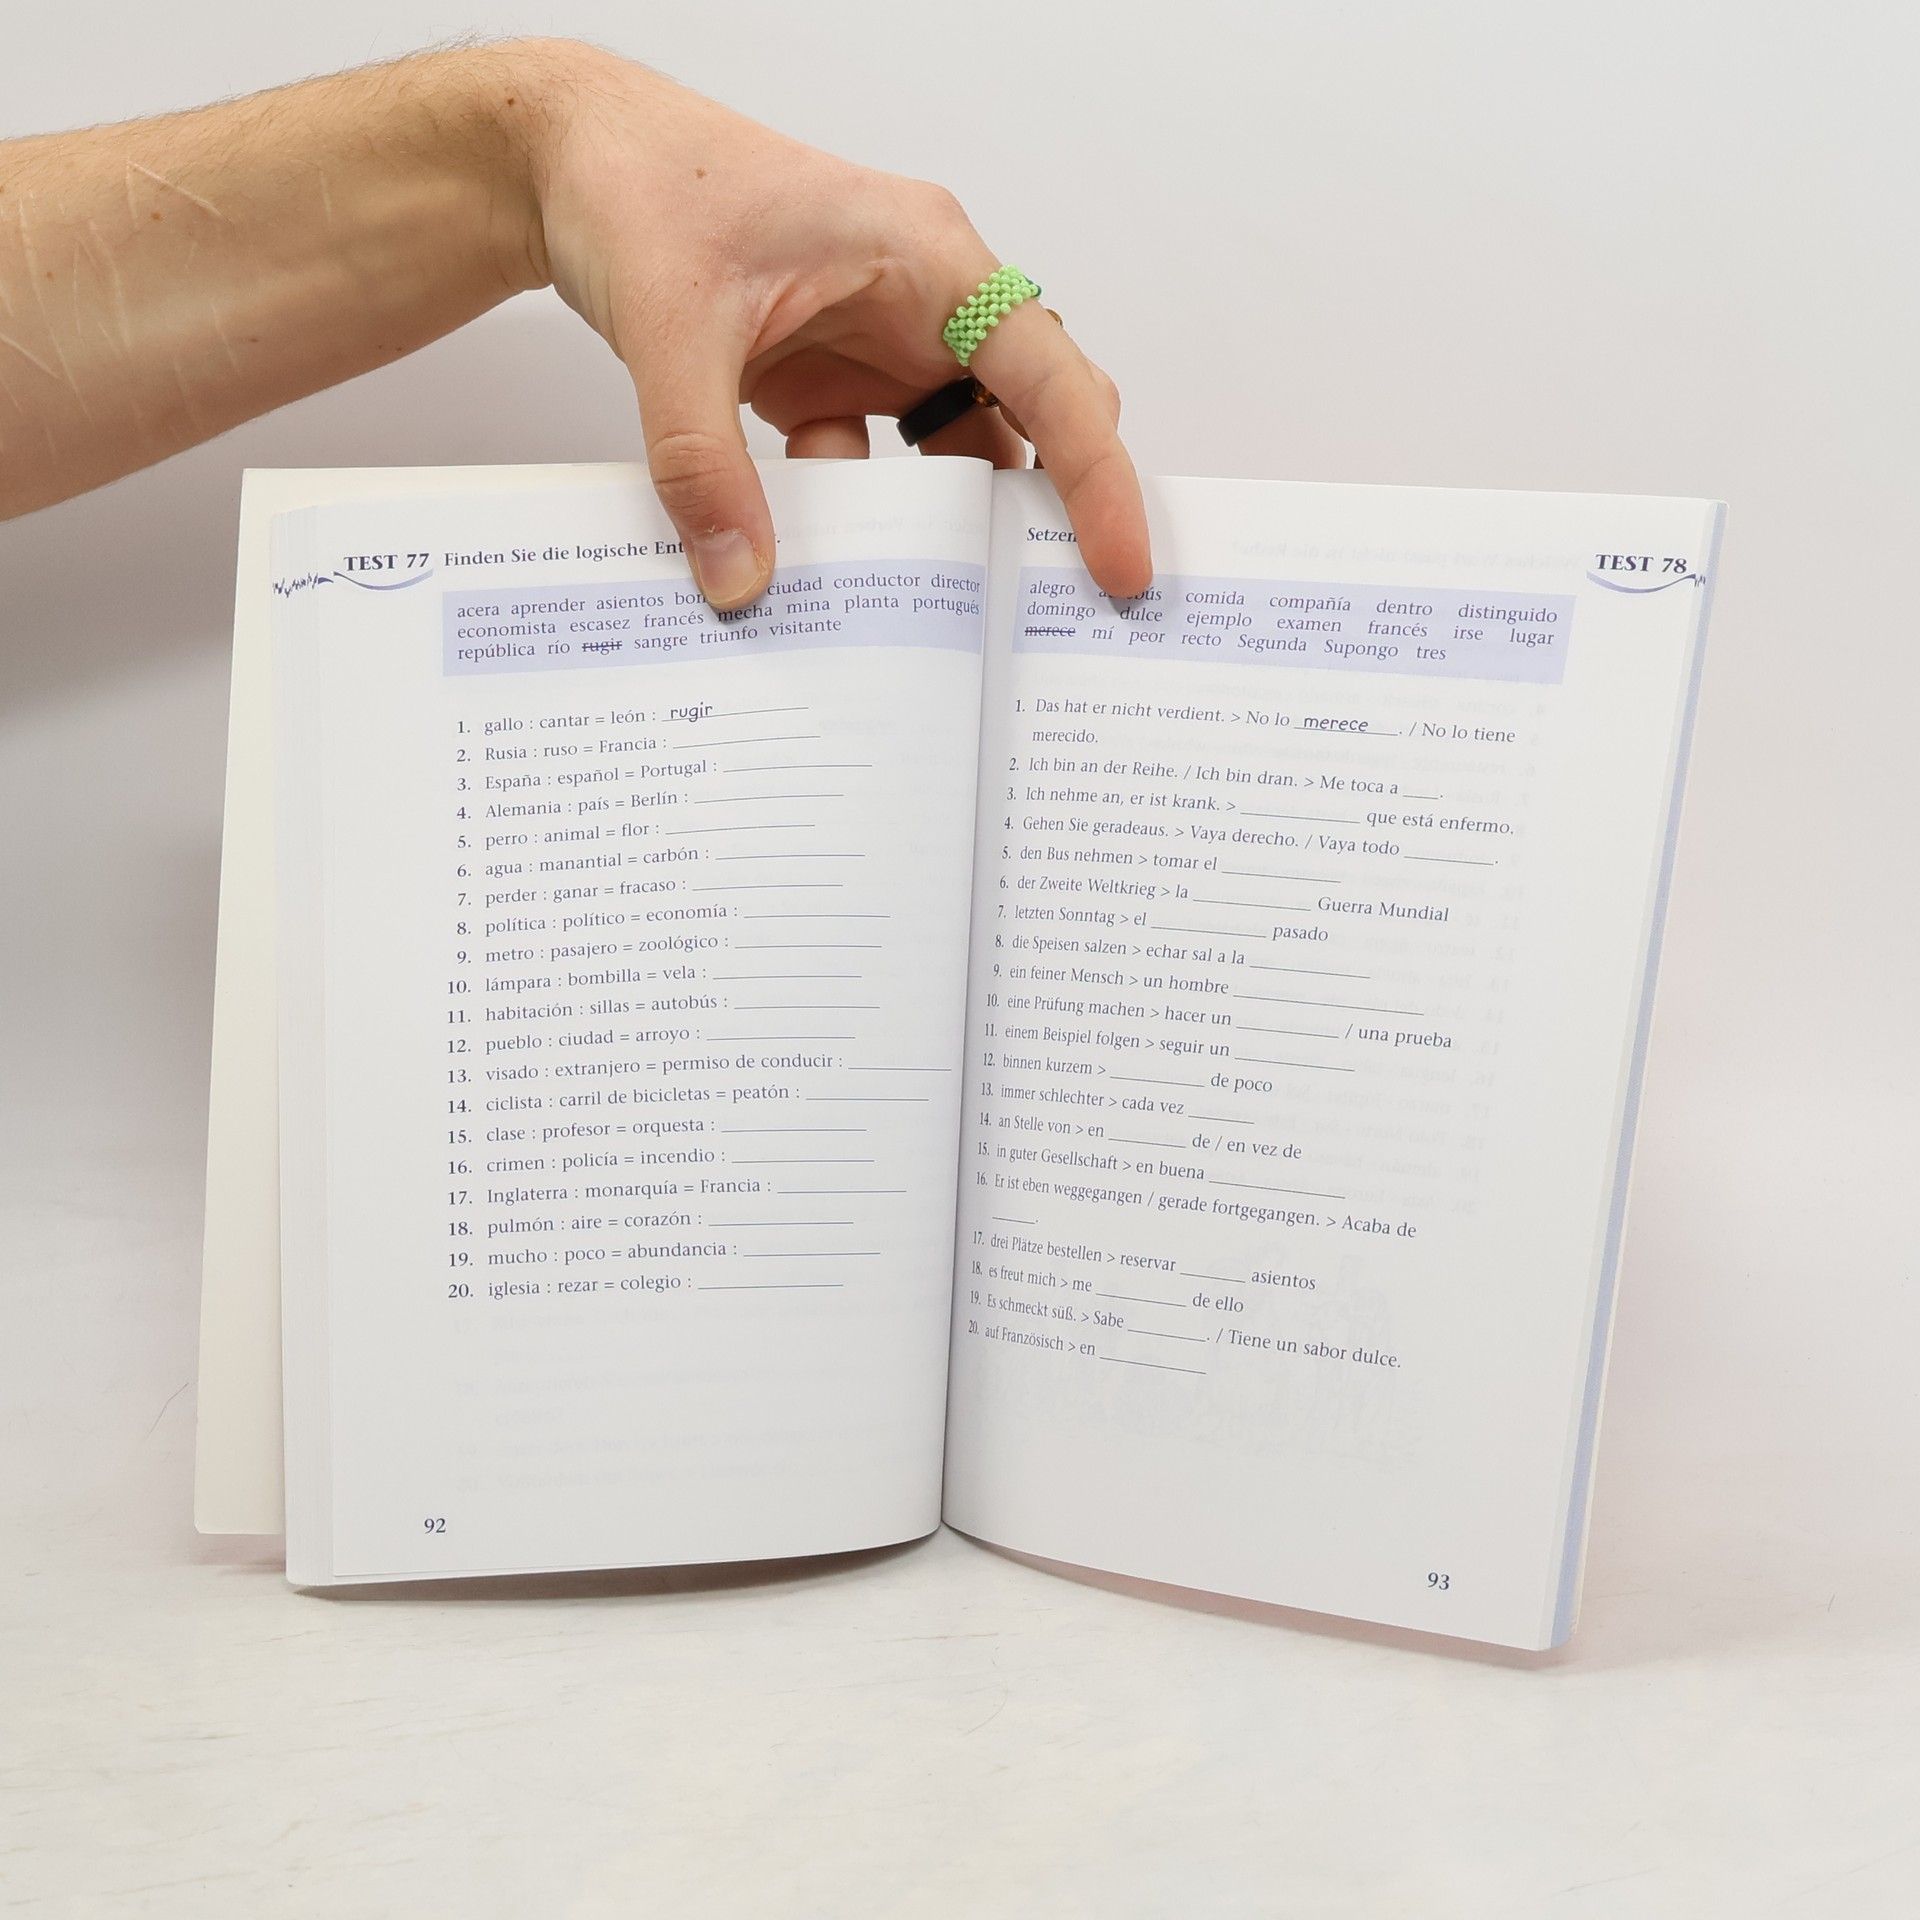 TEST 77 Finden Sie die logische
acera aprender asientos ciudad conductor director
economista escasez francés mecha mina planta portugués
república río rugir sangre triunfo visitante
1. gallo : cantar = león : rugir
2. Rusia : ruso = Francia : ____
3. España : español = Portugal : ____
4. Alemania : país = Berlín : ____
5. perro : animal = flor : ____
6. agua : manantial = carbón : ____
7. perder : ganar = fracaso : ____
8. política : político = economía : ____
9. metro : pasajero = zoológico : ____
10. lámpara : bombilla = vela : ____
11. habitación : sillas = autobús : ____
12. pueblo : ciudad = arroyo : ____
13. visado : extranjero = permiso de conducir : ____
14. ciclista : carril de bicicletas = peatón : ____
15. clase : profesor = orquesta : ____
16. crimen : policía = incendio : ____
17. Inglaterra : monarquía = Francia : ____
18. pulmón : aire = corazón : ____
19. mucho : poco = abundancia : ____
20. iglesia : rezar = colegio : ____
92
TEST 78
alegro comida compañía dentro distinguido
domingo dulce ejemplo examen francés irse lugar
merece mí peor recto Segunda Supongo tres
1. Das hat er nicht verdient. > No lo merece. / No lo tiene
merecido.
2. Ich bin an der Reihe. / Ich bin dran. > Me toca a ____.
3. Ich nehme an, er ist krank. > ____ que está enfermo.
4. Gehen Sie geradeaus. > Vaya derecho. / Vaya todo ____.
5. den Bus nehmen > tomar el ____
6. der Zweite Weltkrieg > la ____ Guerra Mundial
7. letzten Sonntag > el ____ pasado
8. die Speisen salzen > echar sal a la ____
9. ein feiner Mensch > un hombre ____
10. eine Prüfung machen > hacer un ____ / una prueba
11. einem Beispiel folgen > seguir un ____
12. binnen kurzem > ____ de poco
13. immer schlechter > cada vez ____
14. an Stelle von > en ____ de / en vez de
15. in guter Gesellschaft > en buena ____
16. Er ist eben weggegangen / gerade fortgegangen. > Acaba de
____.
17. drei Plätze bestellen > reservar ____ asientos
18. es freut mich > me ____ de ello
19. Es schmeckt süß. > Sabe ____. / Tiene un sabor dulce.
20. auf Französisch > en ____
93